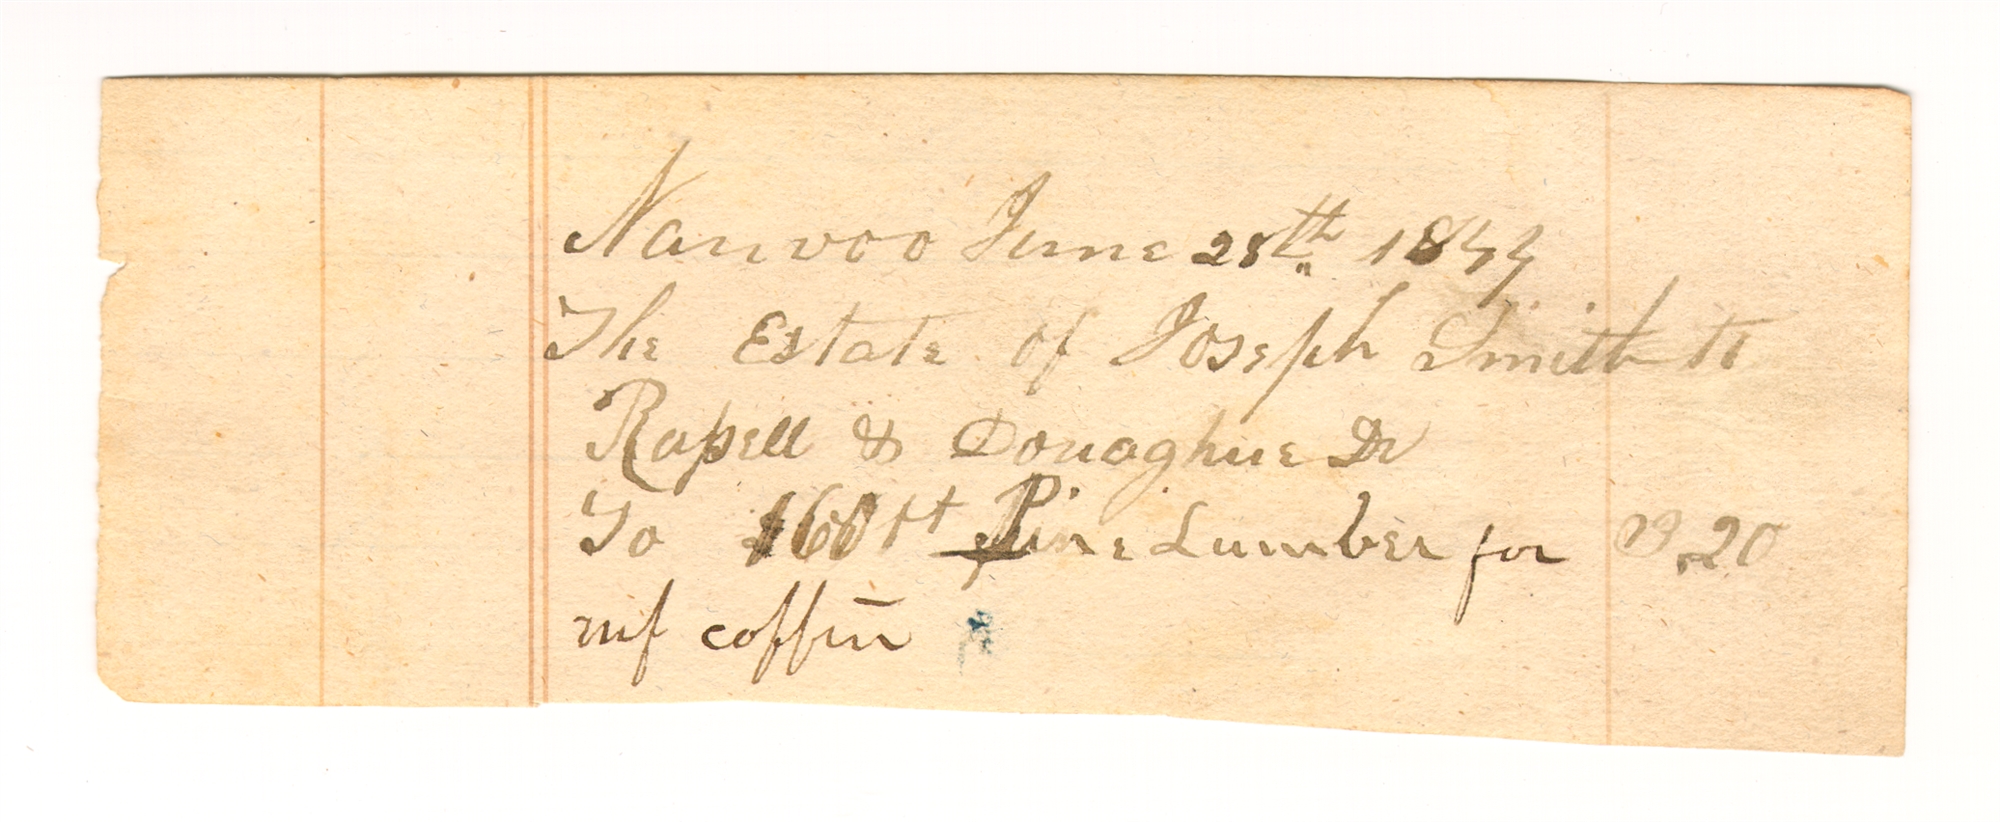 Nauvoo June 28th 1844
The Estate of Joseph Smith to
Rapell & Donaghue Dr
To 160 ft Pine Lumber for 3.20
coffin